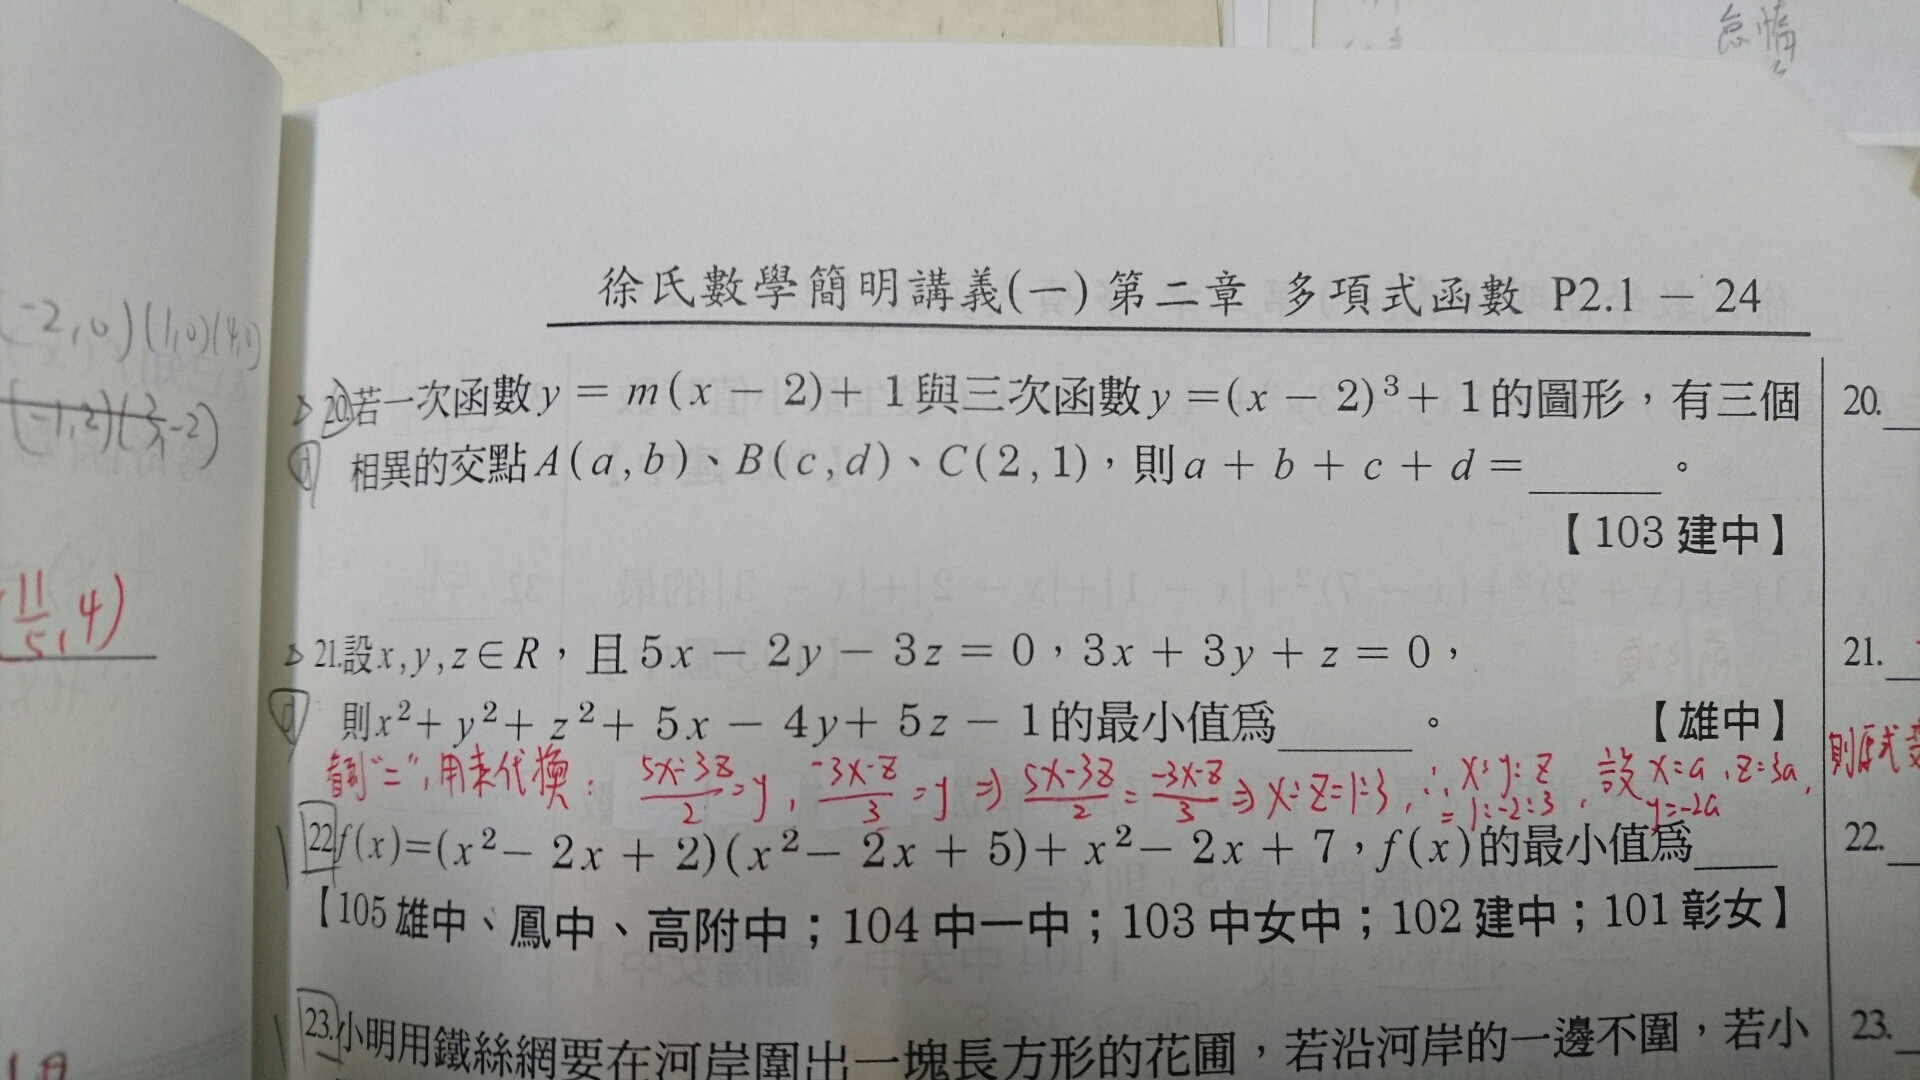 怠惰
徐氏數學簡明講義(一)第二章 多項式函數 P2.1 − 24
(-2,0)(1,0)(4,0)
(-1,2)(
-2)
(11/5,4)
20.若一次函數y = m(x − 2)+ 1與三次函數y =(x − 2)³+ 1的圖形,有三個
相異的交點A(a,b)、B(c,d)、C(2,1),則a + b + c + d =______。
【103建中】
20.
21.設x,y,z∈R,且5x − 2y − 3z = 0,3x + 3y + z = 0,
則x²+ y²+ z²+ 5x − 4y+ 5z − 1的最小值為______。 【雄中】
21.
看到"=",用來代換: (5x-3z)/2=y, (-3x-z)/3=y ⇒ (5x-3z)/2=(-3x-z)/3 ⇒ x:z=1:3, ∴ x:y:z
=1:-2:3, 設x=a,z=3a, y=-2a 則原式
22.f(x)=(x²− 2x + 2)(x²− 2x + 5)+ x²− 2x + 7,f(x)的最小值為____
22.
【105雄中、鳳中、高附中;104中一中;103中女中;102建中;101彰女】
23.小明用鐵絲網要在河岸圍出一塊長方形的花圃,若沿河岸的一邊不圍,若小
23.